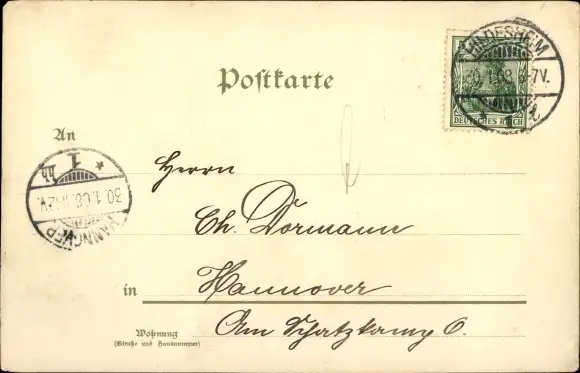 Postkarte
DEUTSCHES REICH
HILDESHEIM
30.1.08. 6-7V.
* 1 2
An
HANNOVER
30.1.08. 11-12V.
* 1
Herrn
Ch. Dormann
in Hannover
Am Schatzkamp 6.
Wohnung
(Straße und Hausnummer)